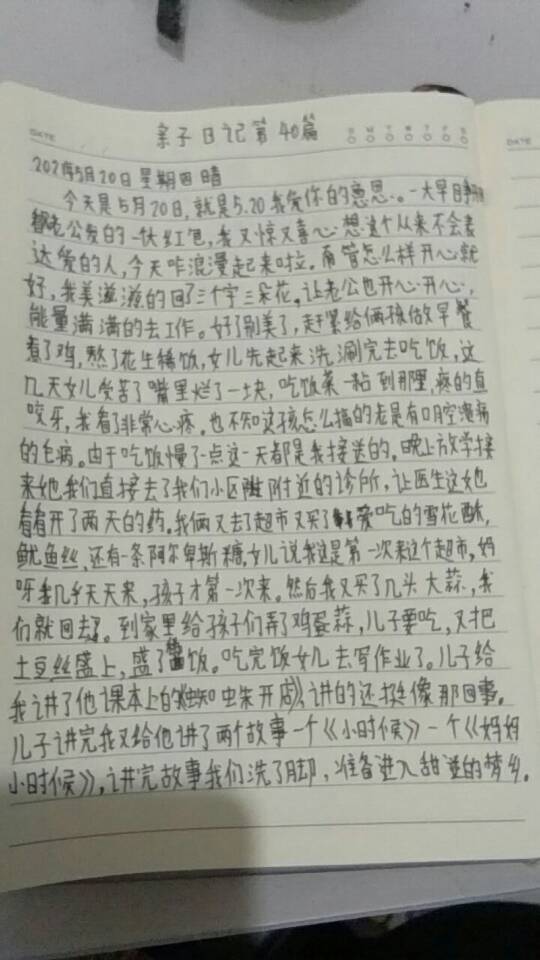 DATE
亲子日记第40篇
S M T W T F S
DATE
2021年5月20日 星期四 晴
今天是5月20日,就是5.20我爱你的意思。一大早日
老公发的一伙红包,我又惊又喜心想这个从来不会表
达爱的人,今天咋浪漫起来啦。甭管怎么样开心就
好,我美滋滋的回了三个字三朵花。让老公也开心开心,
能量满满的去工作。好了别美了,赶紧给俩孩做早餐
煮了鸡,熬了花生稀饭,女儿先起来洗涮完去吃饭,这
几天女儿受苦了嘴里烂了一块,吃饭菜一粘到那里,疼的直
咬牙,我看了非常心疼。也不知这孩怎么搞的老是有口腔溃疡
的毛病。由于吃饭慢了一点这一天都是我接送的。晚上放学接
来她我们直接去了我们小区附近的诊所,让医生这她
看看开了两天的药。我俩又去了超市又买了爱吃的雪花酥,
鱿鱼丝,还有一条阿尔卑斯糖。女儿说我这是第一次来这个超市,妈
呀我几乎天天来,孩子才第一次来。然后我又买了几头大蒜,我
们就回去了。到家里给孩子们弄了鸡蛋蒜,儿子要吃,又把
土豆丝盛上,盛了稀饭。吃完饭女儿去写作业了。儿子给
我讲了他课本上的《蜘蛛开店》,讲的还挺像那回事。
儿子讲完我又给他讲了两个故事一个《小时候》一个《妈妈
小时候》,讲完故事我们洗了脚,准备进入甜滋的梦乡。